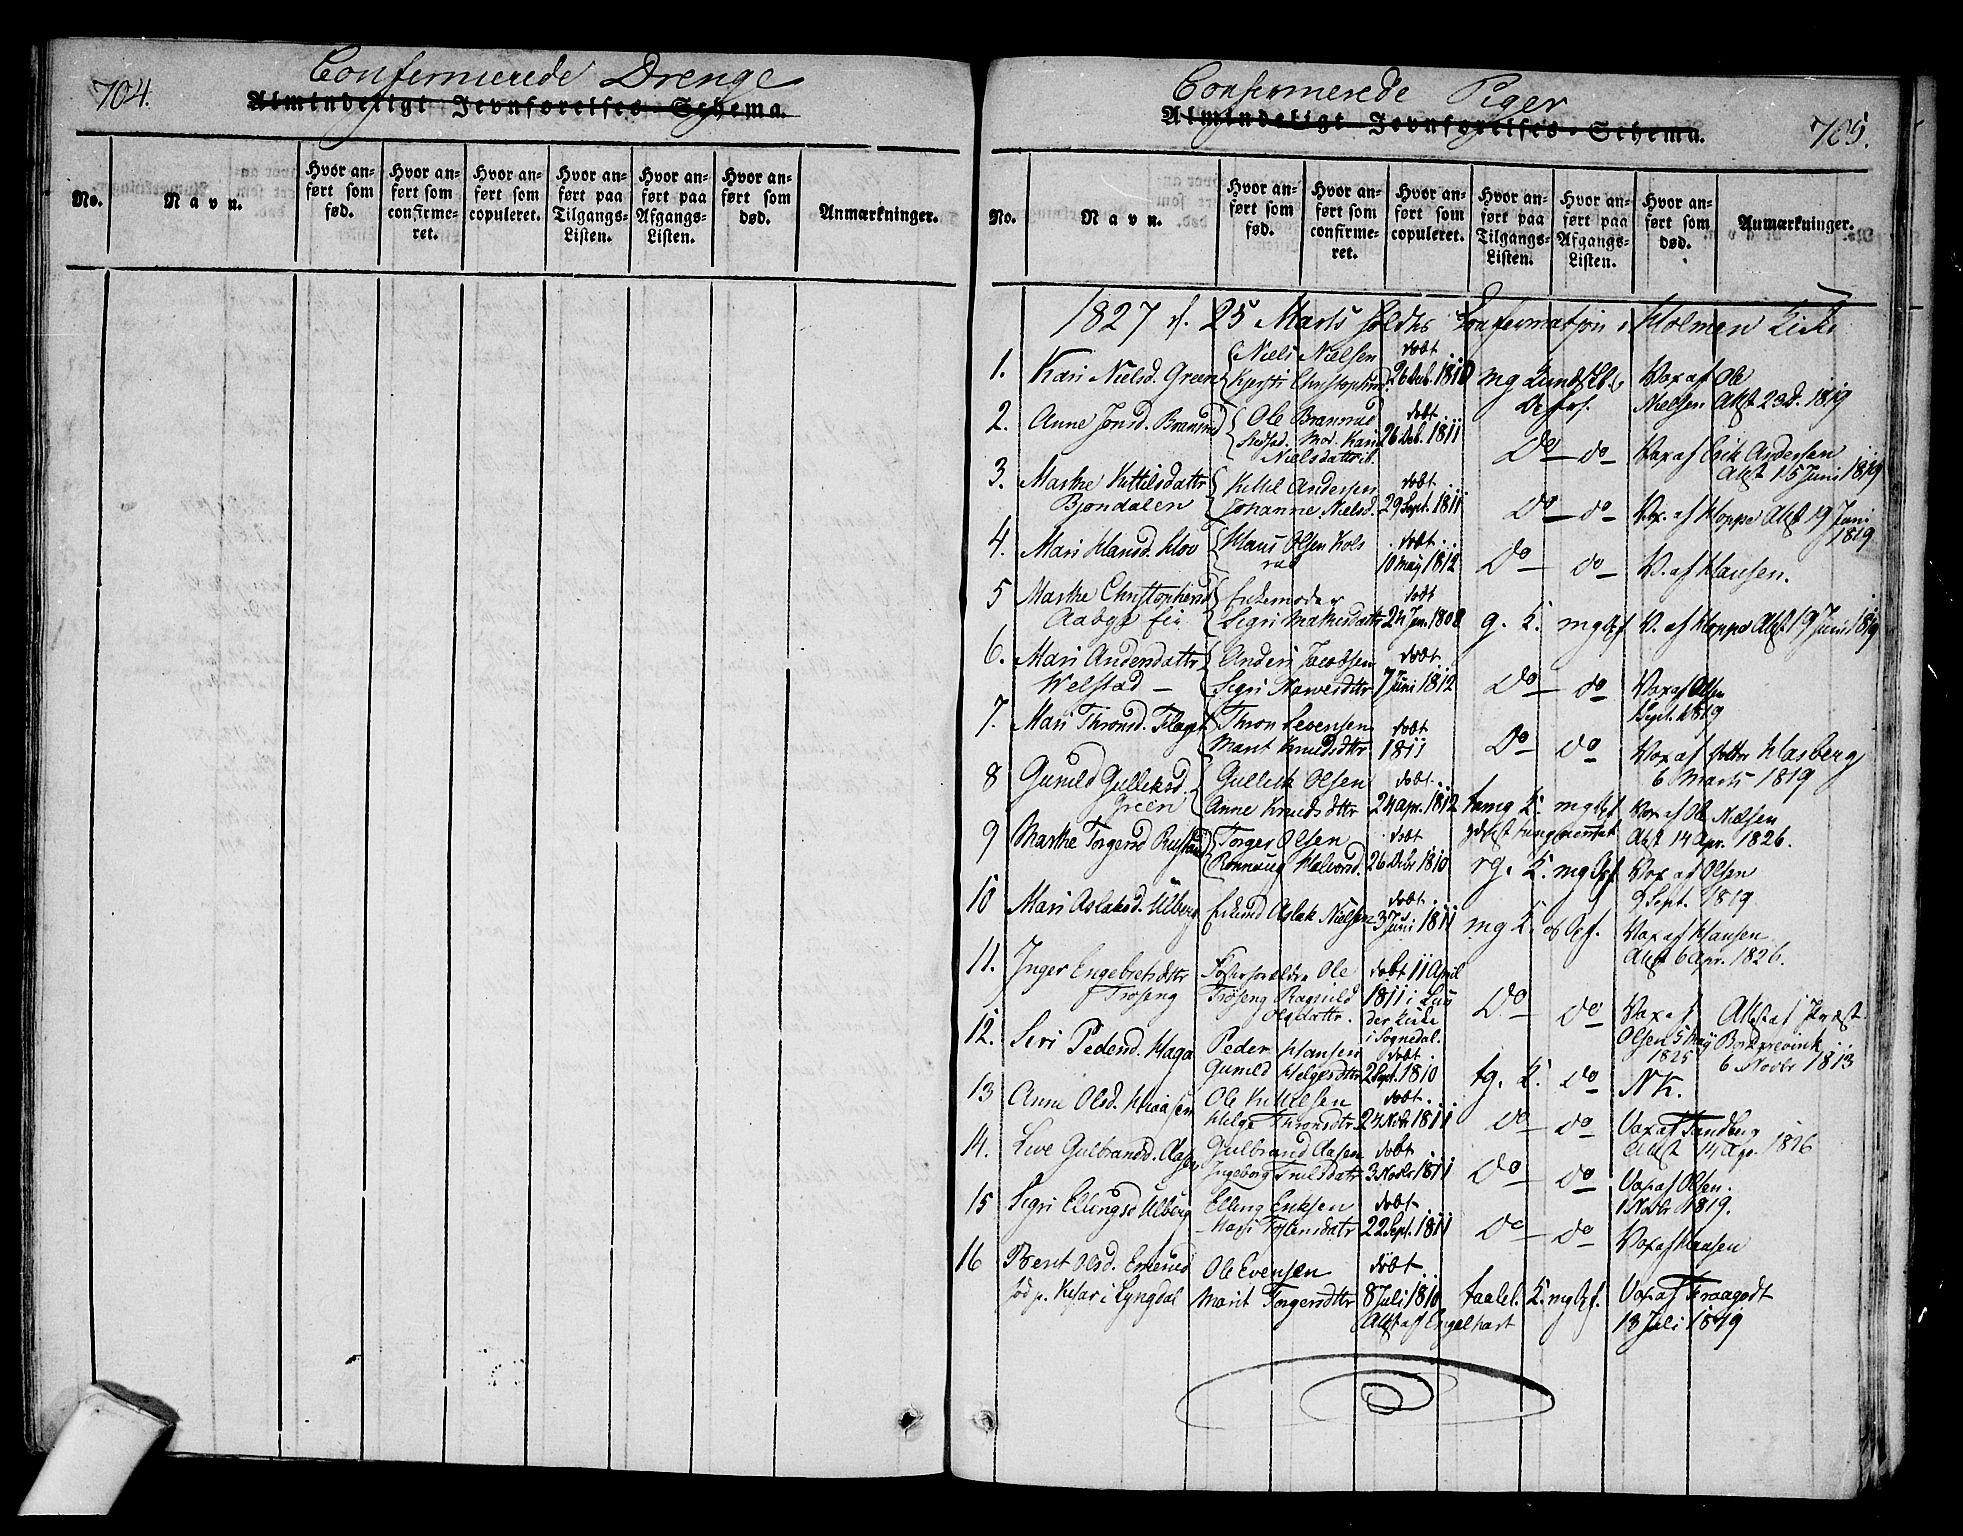 704.
Confirmerede Drenge
Almindeligt Jevnførelses-Schema.
No.
Navn.
Hvor an-
ført som
fød.
Hvor an-
ført som
confirme-
ret.
Hvor an-
ført som
copuleret.
Hvor an-
ført paa
Tilgangs-
Listen.
Hvor an-
ført paa
Afgangs-
Listen.
Hvor an-
ført som
død.
Anmærkninger.
Confirmerede Piger
Almindeligt Jevnførelses-Schema.
705.
No.
Navn.
Hvor an-
ført som
fød.
Hvor an-
ført som
confirme-
ret.
Hvor an-
ført som
copuleret.
Hvor an-
ført paa
Tilgangs-
Listen.
Hvor an-
ført paa
Afgangs-
Listen.
Hvor an-
ført som
død.
Anmærkninger.
1827 d. 25 Marts holdtes Confirmation i Holmen Kirke
1. Kari Nielsd. Green Niels Nielsen Kjersti Christophersd. døbt 26 Deb. 1810 mg Kundsk. Vax af Ole Nielsen Atst 23 d. 1819
2. Anne Jonsd. Braserud Ole Braserud Stedfad. Mod. Kari Nielsdatter døbt 26 Deb. 1811 Do do Vax af Erik Andersen Atst 15 Juni 1819
3. Marthe Kittilsdattr Bjøndalen Kittel Andersen Johanne Nielsd. døbt 29 Sept. 1811 Do do V. af Hoppe Atst 19 Juni 1819
4. Mari Hansd. Hov Hans Olsen Kols rud døbt 10 May 1812 Do do V. af Hansen.
5 Marthe Christophersd Aabye Eie Enkemoder Segri Mathisdattr døbt 24 Jan. 1808 g. K. mg V. af Hoppe Atst 19 Juni 1819
6. Mari Andersdattr Welstad Anders Jacobsen Segri Narvesdttr døbt 7 Juni 1812 Do do Vax af Olsen 1 Sept. 1819
7. Mari Thronsd. Flaget Thron Levensen Marit Knudsdttr døbt 1811 Do do Vax af Hasberg 6 Marts 1819
8 Gunild Gulleksd. Green Gullek Olsen Anne Knudsdttr døbt 24 apr. 1812 temg K. mg Vax af Ole Nielsen Atst 14 Apr. 1826.
9 Marthe Torgersd Rustand Torger Olsen Rønnaug Halvorsd. døbt 26 Debr 1810 rg. K. mg Vax af Olsen 9 Sept. 1819
10 Mari Aslaksd. Ulberg Enkemd Aslak Nielsen døbt 3 Juni 1811 mg K. og Vax af Hansen Atst 6 apr. 1826.
11. Inger Engebretsdttr Trøseng Fosterforældre Ole Trøseng Ragnild Olsdattr. døbt 11 April 1811 i Lun der Kirke i Sognedal. Do do Vax af Olsen 5 May 1825 Attst af Præst 6 Novbr 1813
12. Siri Pedersd. Haga Peder Hansen Gunild Helgesdttr døbt 2 Sept. 1810 tg. K. do NK.
13 Anne Olsd. Ole Kittilsen Helge Thronsdtr døbt 24 Novbr 1811 do do Vax af Tandberg Attst 14 Ap. 1826
14. Live Gulbrandsd. Aasen Gulbrand Aasen Ingeborg Truelsdattr døbt 3 Novbr 1811 Do do Vax af Olsen. 1 Novbr 1819.
15 Segri Ellingsd Ulberg Elling Eriksen Mari Tostensdatr døbt 22 Sept. 1811 Do do Vax af Hansen
16 Berit Olsd. Emerud Fød p. i Lyngdal Ole Evensen Marit Torgersdttr døbt 8 Juli 1810 Attst af Engelhart taalel. K. mg Vax af Fraagodt 18 Juli 1819